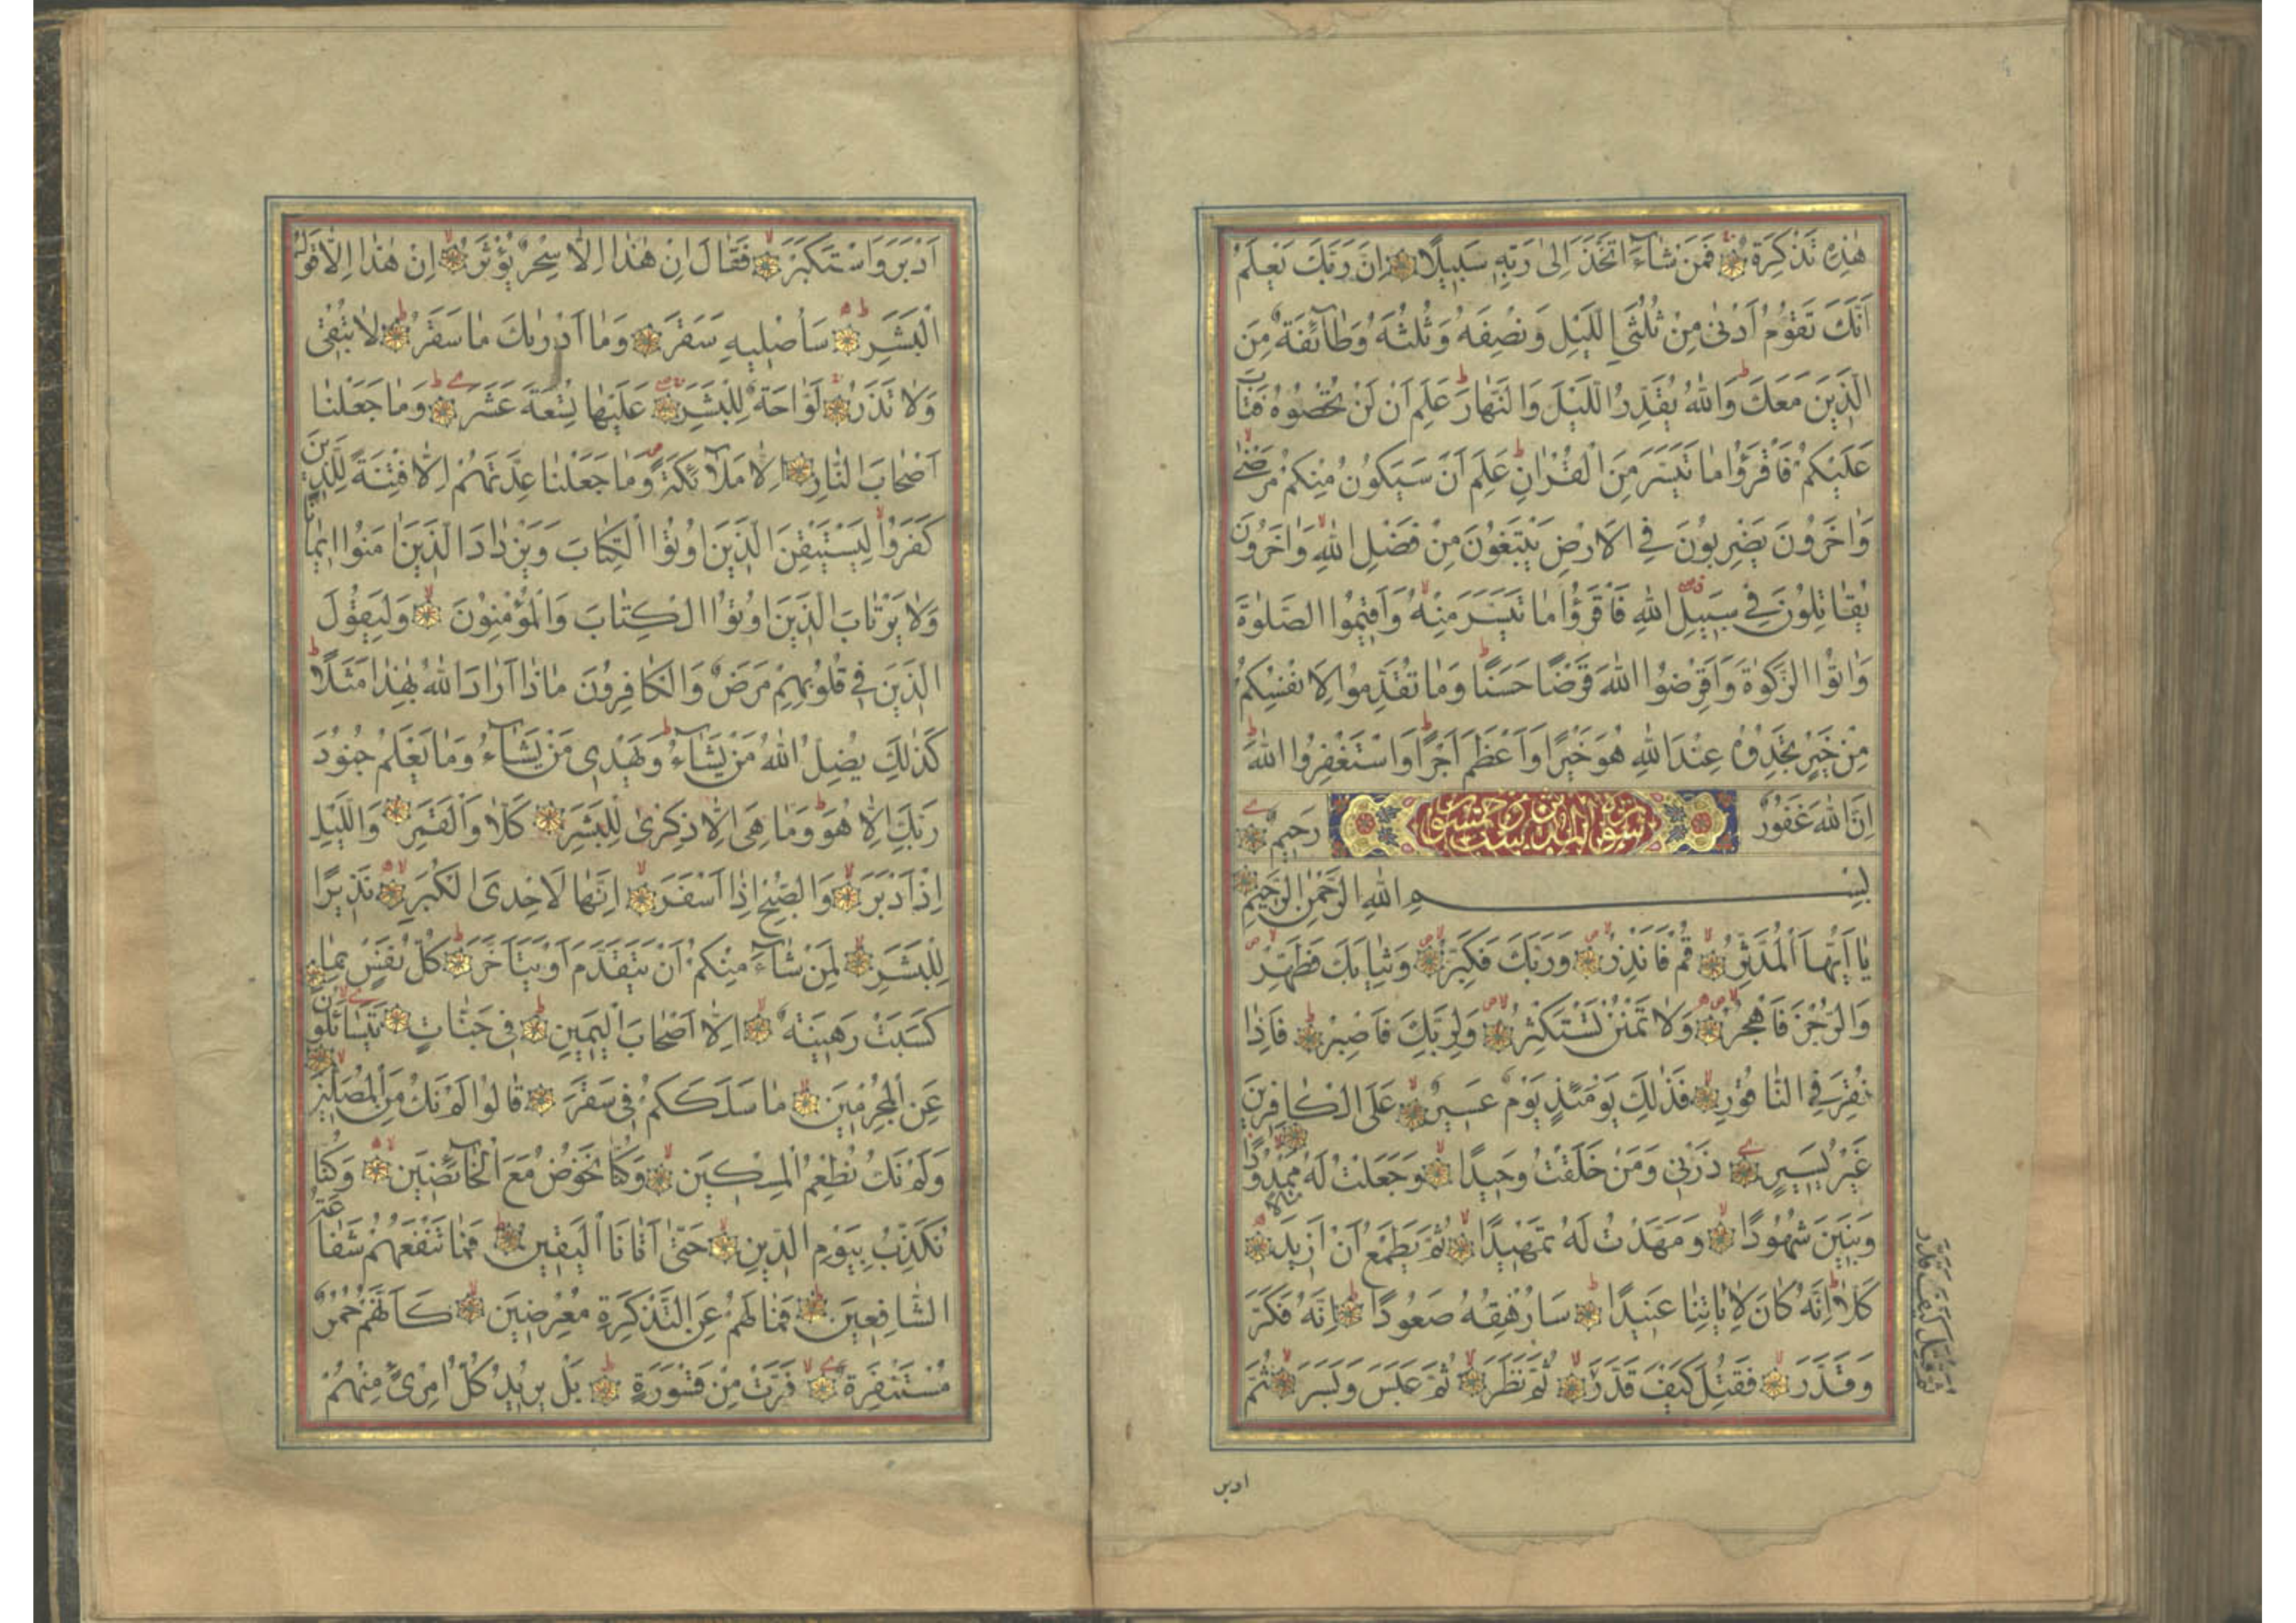 هٰذِهٖ تَذْكِرَةٌ فَمَنْ شَآءَ اتَّخَذَ اِلٰى رَبِّهٖ سَبِيلًا اِنَّ رَبَّكَ يَعْلَمُ
اَنَّكَ تَقُومُ اَدْنٰى مِنْ ثُلُثَىِ الَّيْلِ وَنِصْفَهُ وَثُلُثَهُ وَطَآئِفَةٌ مِنَ
الَّذِينَ مَعَكَ وَاللّٰهُ يُقَدِّرُ الَّيْلَ وَالنَّهَارَ عَلِمَ اَنْ لَنْ تُحْصُوهُ فَتَابَ
عَلَيْكُمْ فَاقْرَؤُا مَا تَيَسَّرَ مِنَ الْقُرْاٰنِ عَلِمَ اَنْ سَيَكُونُ مِنْكُمْ مَرْضٰى
وَاٰخَرُونَ يَضْرِبُونَ فِى الْاَرْضِ يَبْتَغُونَ مِنْ فَضْلِ اللّٰهِ وَاٰخَرُونَ
يُقَاتِلُونَ فِى سَبِيلِ اللّٰهِ فَاقْرَؤُا مَا تَيَسَّرَ مِنْهُ وَاَقِيمُوا الصَّلٰوةَ
وَاٰتُوا الزَّكٰوةَ وَاَقْرِضُوا اللّٰهَ قَرْضًا حَسَنًا وَمَا تُقَدِّمُوا لِاَنْفُسِكُمْ
مِنْ خَيْرٍ تَجِدُوهُ عِنْدَ اللّٰهِ هُوَ خَيْرًا وَاَعْظَمَ اَجْرًا وَاسْتَغْفِرُوا اللّٰهَ
اِنَّ اللّٰهَ غَفُورٌ رَحِيمٌ
بِسْمِ اللّٰهِ الرَّحْمٰنِ الرَّحِيمِ
يَا اَيُّهَا الْمُدَّثِّرُ قُمْ فَاَنْذِرْ وَرَبَّكَ فَكَبِّرْ وَثِيَابَكَ فَطَهِّرْ
وَالرُّجْزَ فَاهْجُرْ وَلَا تَمْنُنْ تَسْتَكْثِرُ وَلِرَبِّكَ فَاصْبِرْ فَاِذَا
نُقِرَ فِى النَّاقُورِ فَذٰلِكَ يَوْمَئِذٍ يَوْمٌ عَسِيرٌ عَلَى الْكَافِرِينَ
غَيْرُ يَسِيرٍ ذَرْنِى وَمَنْ خَلَقْتُ وَحِيدًا وَجَعَلْتُ لَهُ مَالًا مَمْدُودًا
وَبَنِينَ شُهُودًا وَمَهَّدْتُ لَهُ تَمْهِيدًا ثُمَّ يَطْمَعُ اَنْ اَزِيدَ
كَلَّا اِنَّهُ كَانَ لِاٰيَاتِنَا عَنِيدًا سَاُرْهِقُهُ صَعُودًا اِنَّهُ فَكَّرَ
وَقَدَّرَ فَقُتِلَ كَيْفَ قَدَّرَ ثُمَّ نَظَرَ ثُمَّ عَبَسَ وَبَسَرَ ثُمَّ
ثُمَّ قُتِلَ كَيْفَ قَدَّرَ
ادبر
اَدْبَرَ وَاسْتَكْبَرَ فَقَالَ اِنْ هٰذَا اِلَّا سِحْرٌ يُؤْثَرُ اِنْ هٰذَا اِلَّا قَوْلُ
الْبَشَرِ سَاُصْلِيهِ سَقَرَ وَمَا اَدْرٰيكَ مَا سَقَرُ لَا تُبْقِى
وَلَا تَذَرُ لَوَّاحَةٌ لِلْبَشَرِ عَلَيْهَا تِسْعَةَ عَشَرَ وَمَا جَعَلْنَا
اَصْحَابَ النَّارِ اِلَّا مَلَآئِكَةً وَمَا جَعَلْنَا عِدَّتَهُمْ اِلَّا فِتْنَةً لِلَّذِينَ
كَفَرُوا لِيَسْتَيْقِنَ الَّذِينَ اُوتُوا الْكِتَابَ وَيَزْدَادَ الَّذِينَ اٰمَنُوا اِيمَانًا
وَلَا يَرْتَابَ الَّذِينَ اُوتُوا الْكِتَابَ وَالْمُؤْمِنُونَ وَلِيَقُولَ
الَّذِينَ فِى قُلُوبِهِمْ مَرَضٌ وَالْكَافِرُونَ مَاذَا اَرَادَ اللّٰهُ بِهٰذَا مَثَلًا
كَذٰلِكَ يُضِلُّ اللّٰهُ مَنْ يَشَآءُ وَيَهْدِى مَنْ يَشَآءُ وَمَا يَعْلَمُ جُنُودَ
رَبِّكَ اِلَّا هُوَ وَمَا هِىَ اِلَّا ذِكْرٰى لِلْبَشَرِ كَلَّا وَالْقَمَرِ وَالَّيْلِ
اِذْ اَدْبَرَ وَالصُّبْحِ اِذَا اَسْفَرَ اِنَّهَا لَاِحْدَى الْكُبَرِ نَذِيرًا
لِلْبَشَرِ لِمَنْ شَآءَ مِنْكُمْ اَنْ يَتَقَدَّمَ اَوْ يَتَاَخَّرَ كُلُّ نَفْسٍ بِمَا
كَسَبَتْ رَهِينَةٌ اِلَّا اَصْحَابَ الْيَمِينِ فِى جَنَّاتٍ يَتَسَآئَلُونَ
عَنِ الْمُجْرِمِينَ مَا سَلَكَكُمْ فِى سَقَرَ قَالُوا لَمْ نَكُ مِنَ الْمُصَلِّينَ
وَلَمْ نَكُ نُطْعِمُ الْمِسْكِينَ وَكُنَّا نَخُوضُ مَعَ الْخَآئِضِينَ وَكُنَّا
نُكَذِّبُ بِيَوْمِ الدِّينِ حَتّٰى اَتَانَا الْيَقِينُ فَمَا تَنْفَعُهُمْ شَفَاعَةُ
الشَّافِعِينَ فَمَا لَهُمْ عَنِ التَّذْكِرَةِ مُعْرِضِينَ كَاَنَّهُمْ حُمُرٌ
مُسْتَنْفِرَةٌ فَرَّتْ مِنْ قَسْوَرَةٍ بَلْ يُرِيدُ كُلُّ امْرِئٍ مِنْهُمْ